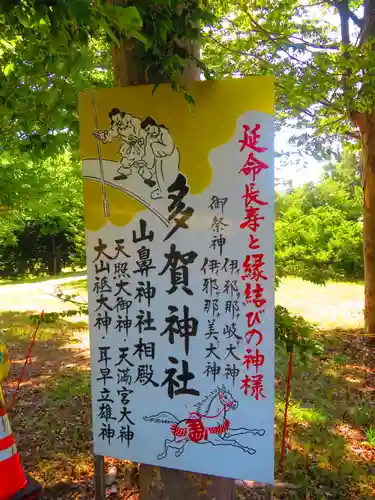 延命長寿と縁結びの神様
御祭神
伊邪那岐大神
伊邪那美大神
多賀神社
山鼻神社相殿
天照大御神・天満宮大神
大山祇大神・耳早立雄神